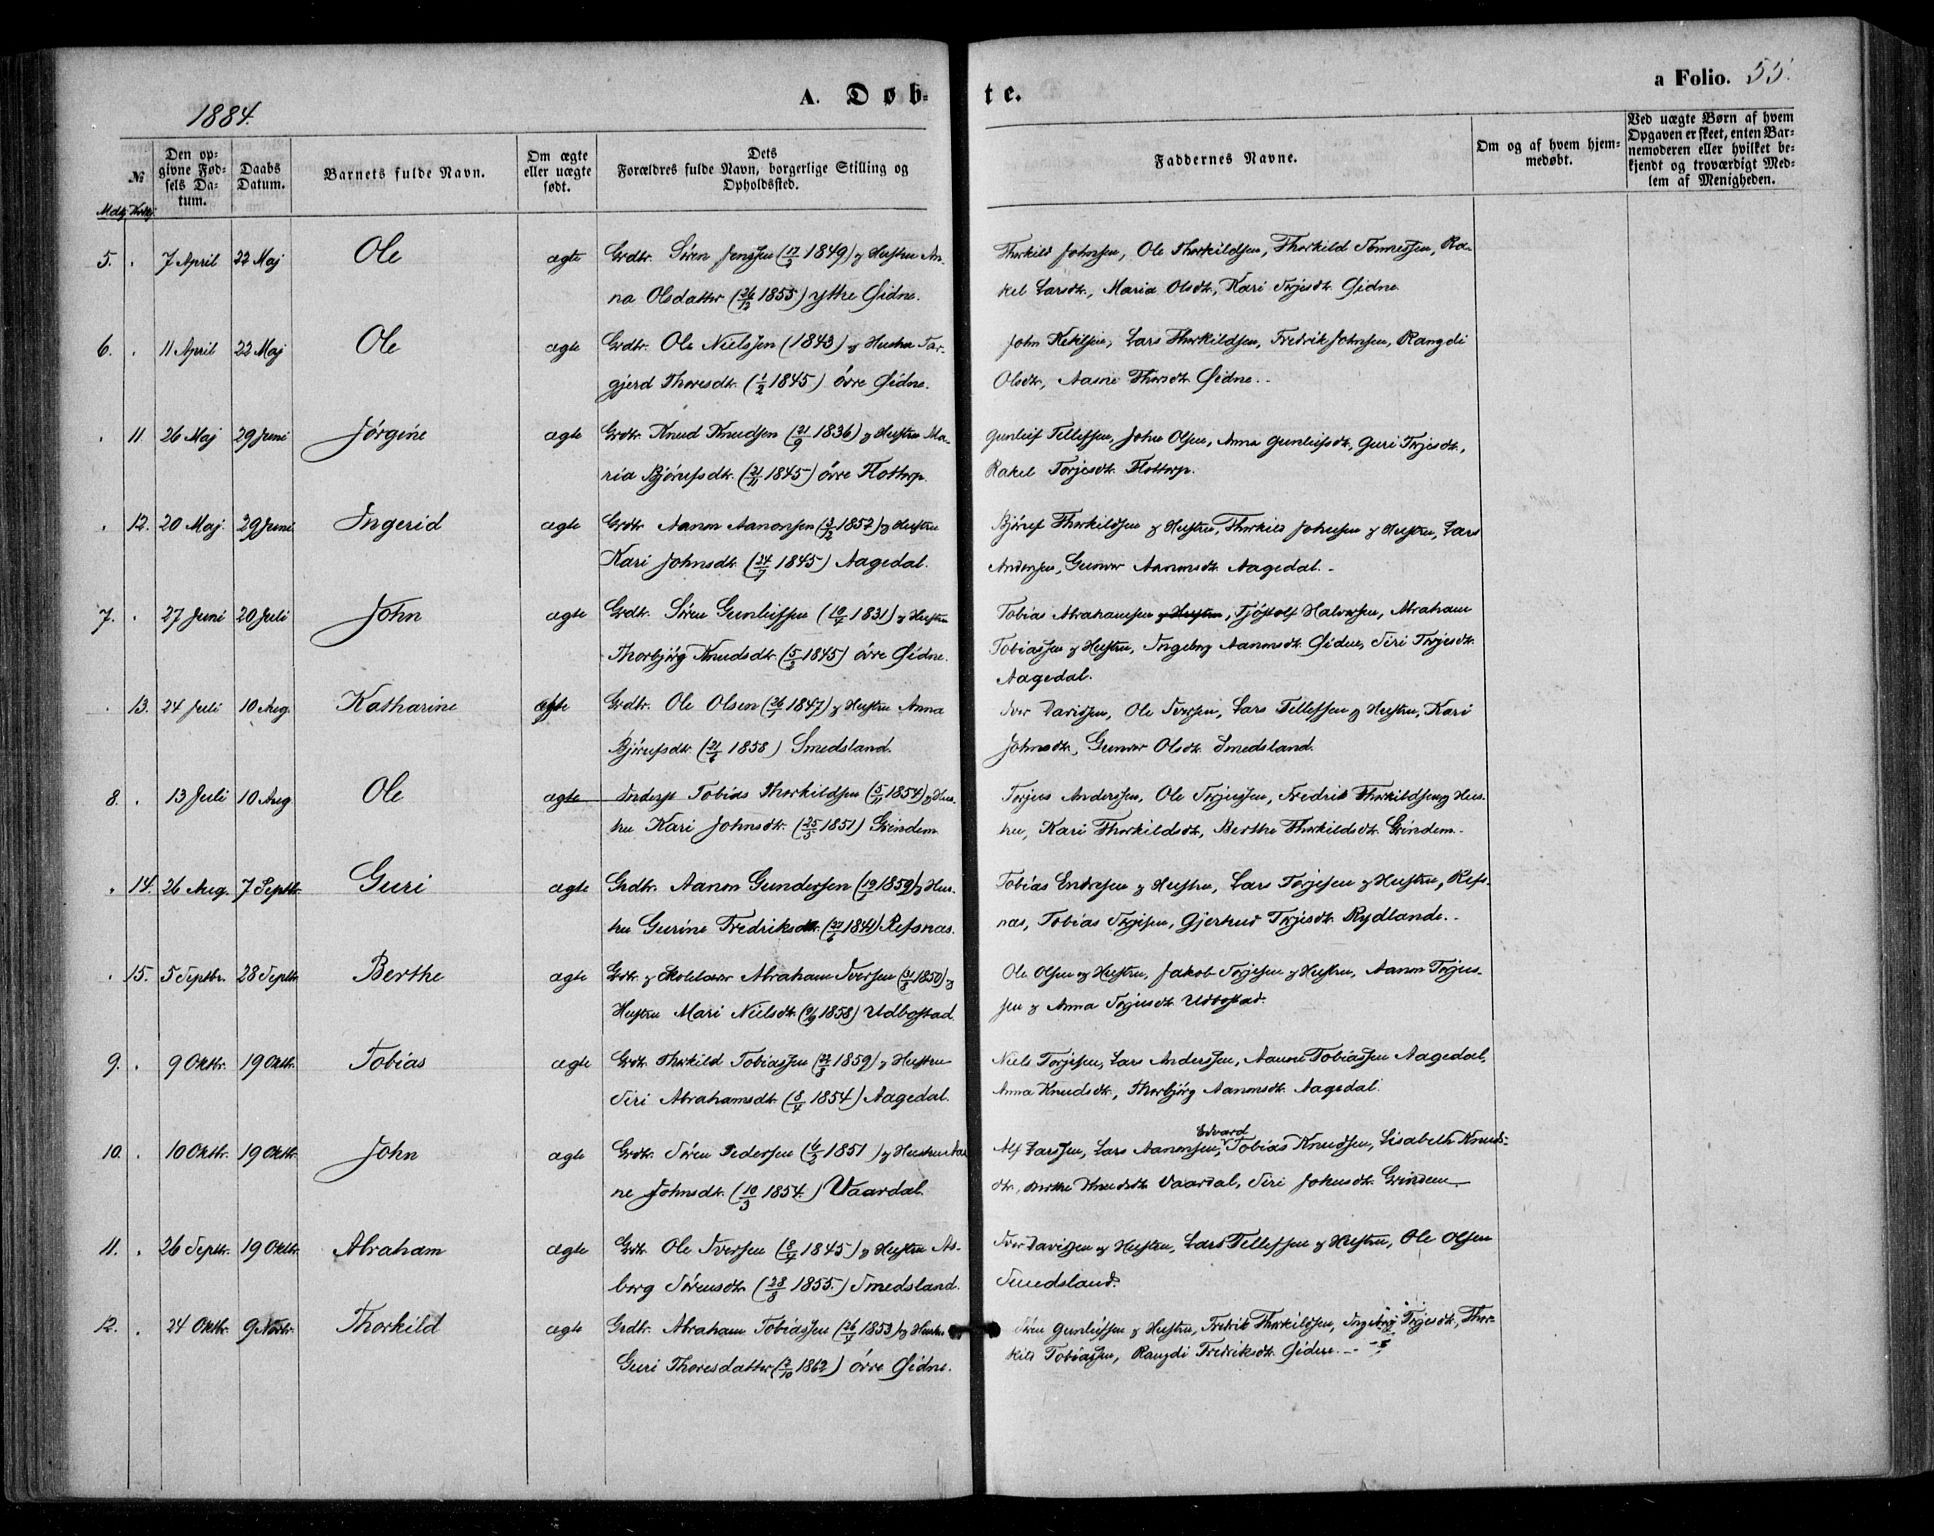 1884.
A. Døb-
te.
a Folio. 55.
№
Mdkj. Kvkj.
Den op-
givne Fød-
sels Da-
tum.
Daabs
Datum.
Barnets fulde Navn.
Om ægte
eller uægte
født.
Dets
Forældres fulde Navn, borgerlige Stilling og
Opholdssted.
Faddernes Navne.
Om og af hvem hjem-
medøbt.
Ved uægte Børn af hvem
Opgaven er skeet, enten Bar-
nemoderen eller hvilket be-
kjendt og troværdigt Med-
lem af Menigheden.
5. . 7 April 22 Maj Ole ægte Grdbr. Søren Jenssen (17/2 1849) og Hustru An-
na Olsdatter (26/12 1855) ytre Øidne.
Thorkild Johnsen, Ole Thorkildsen, Thorkild Tønnessen, Ra-
kel Larsdtr., Maria Olsdtr., Kari Torjesdtr. Øidne
6. . 11 April 22 Maj Ole ægte Grdbr. Ole Nielssen (1843) og Hustru Tar-
gjerd Thoresdtr. (1/2 1845) övre Øidne.
John Ketilsen, Lars Thorkildsen, Fredrik Johnsen, Rangdi
Olsdtr., Aasne Thorsdtr. Øidne.
. 11. 26 Maj 29 Juni Jørgine ægte Grdbr. Knud Knudsen (21/9 1836) og Hustru Ma-
ria Bjørufsdtr. (21/11 1845) övre Flottorp.
Gunleif Tellefsen, John Olsen, Anna Gunleifsdtr., Guri Torjesdtr.,
Rakel Torjesdtr. Flottorp.
. 12. 20 Maj 29 Juni Ingerid ægte Grdbr. Aanon Aanonsen (3/2 1857) og Hustru
Kari Johnsdtr. (24/9 1845) Aagedal.
Bjøruf Thorkildsen og Hustru, Thorkild Johnsen og Hustru, Lars
Andersen, Gunvor Aanonsdtr. Aagedal.
7. . 27 Juni 20 Juli John ægte Grdbr. Søren Gunleifsen (10/4 1831) og Hustru
Thorbjörg Knudsdtr. (5/5 1845) övre Øidne.
Tobias Abrahamsen og Hustru, Tjöstolf Halvorsen, Abraham
Tobiassen og Hustru, Ingeborg Aanonsdtr. Øidne, Siri Torjesdtr.
Aagedal.
. 13. 24 Juli 10 Aug. Katharine ægte Grdbr. Ole Olsen (26/1 1847) og Hustru Anna
Bjørufsdtr. (21/6 1858) Smedsland.
Iver Davidsen, Ole Iversen, Lars Tellefsen og Hustru, Kari
Johnsdtr., Gunvor Olsdtr. Smedsland.
8. . 13 Juli 10 Aug. Ole ægte Inderst Tobias Thorkildsen (5/11 1854) og Hus-
tru Kari Johnsdtr. (25/5 1851) Grindem
Torjus Anderssen, Ole Torjussen, Fredrik Thorkildsen og Hus-
tru, Kari Thorkildsdtr., Berthe Thorkildsdtr. Grindem.
. 14. 26 Aug. 7 Septbr. Guri ægte Grdbr. Aanon Gundersen (19/2 1859) og Hus-
tru Gurine Fredriksdtr. (22/6 1841) Refsnas.
Tobias Endresen og Hustru, Lars Torjesen og Hustru, Refs-
nas, Tobias Torjesen, Gjertrud Torjesdtr. Rydlande.
. 15. 5 Septbr. 28 Septbr. Berthe ægte Grdbr. og Skolelærer Abraham Iversen (31/3 1850) og
Hustru Mari Nielsdtr. (9/9 1858) Udbostad.
Ole Olsen og Hustru, Jakob Torjesen og Hustru, Aanon Torjus-
sen og Anna Torjusdtr. Udbostad.
9. . 9 Oktbr. 19 Oktbr. Tobias ægte Grdbr. Thorkild Tobiassen (22/3 1859) og Hustru
Siri Abrahamsdtr. (8/4 1854) Aagedal.
Niels Torjesen, Lars Anderssen, Aanon Tobiassen Aagedal,
Anna Knudsdtr., Thorbjörg Aanonsdtr. Aagedal.
10. . 10 Oktbr. 19 Oktbr. John ægte Grdbr. Søren Pedersen (6/2 1851) og Hustru Aas-
ne Johnsdtr. (10/3 1854) Vaardal.
Alf Larssen, Lars Aanonsen, Edvard Tobias Knudsen, Lisabeth Knuds-
dtr., Berthe Knudsdtr. Vaardal, Siri Johnsdtr. Grindem
11. . 26 Septbr. 19 Oktbr. Abraham ægte Grdbr. Ole Iversen (8/4 1845) og Hustru As-
borg Sørensdtr. (28/8 1855.) Smedsland.
Iver Davidsen og Hustru, Lars Tellefsen og Hustru, Ole Olsen
Smedsland.
12. . 24 Oktbr. 9 Novbr. Thorkild ægte Grdbr. Abraham Tobiassen (26/4 1853) og Hustru
Guri Thoresdatter (2/10 1862) övre Øidne.
Søren Gunleifsen og Hustru, Fredrik Thorkildsen, Ingeborg Torjesdtr., Thor-
kild Tobiassen, Rangdi Fredriksdtr. Øidne.